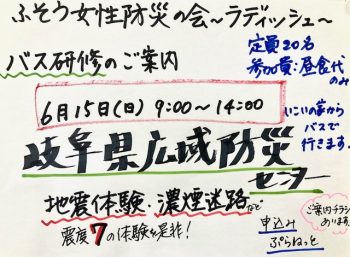 ふそう女性防災の会～ラディッシュ～
バス研修のご案内
定員20名
参加費：昼食代
のみ
6月15日(日) 9:00～14:00
いこいの家から
バスで
行きます。
岐阜県広域防災
センター
地震体験・濃煙迷路など
震度7の体験を是非!
申込み
ぷらねっと
ご案内チラシ
あります